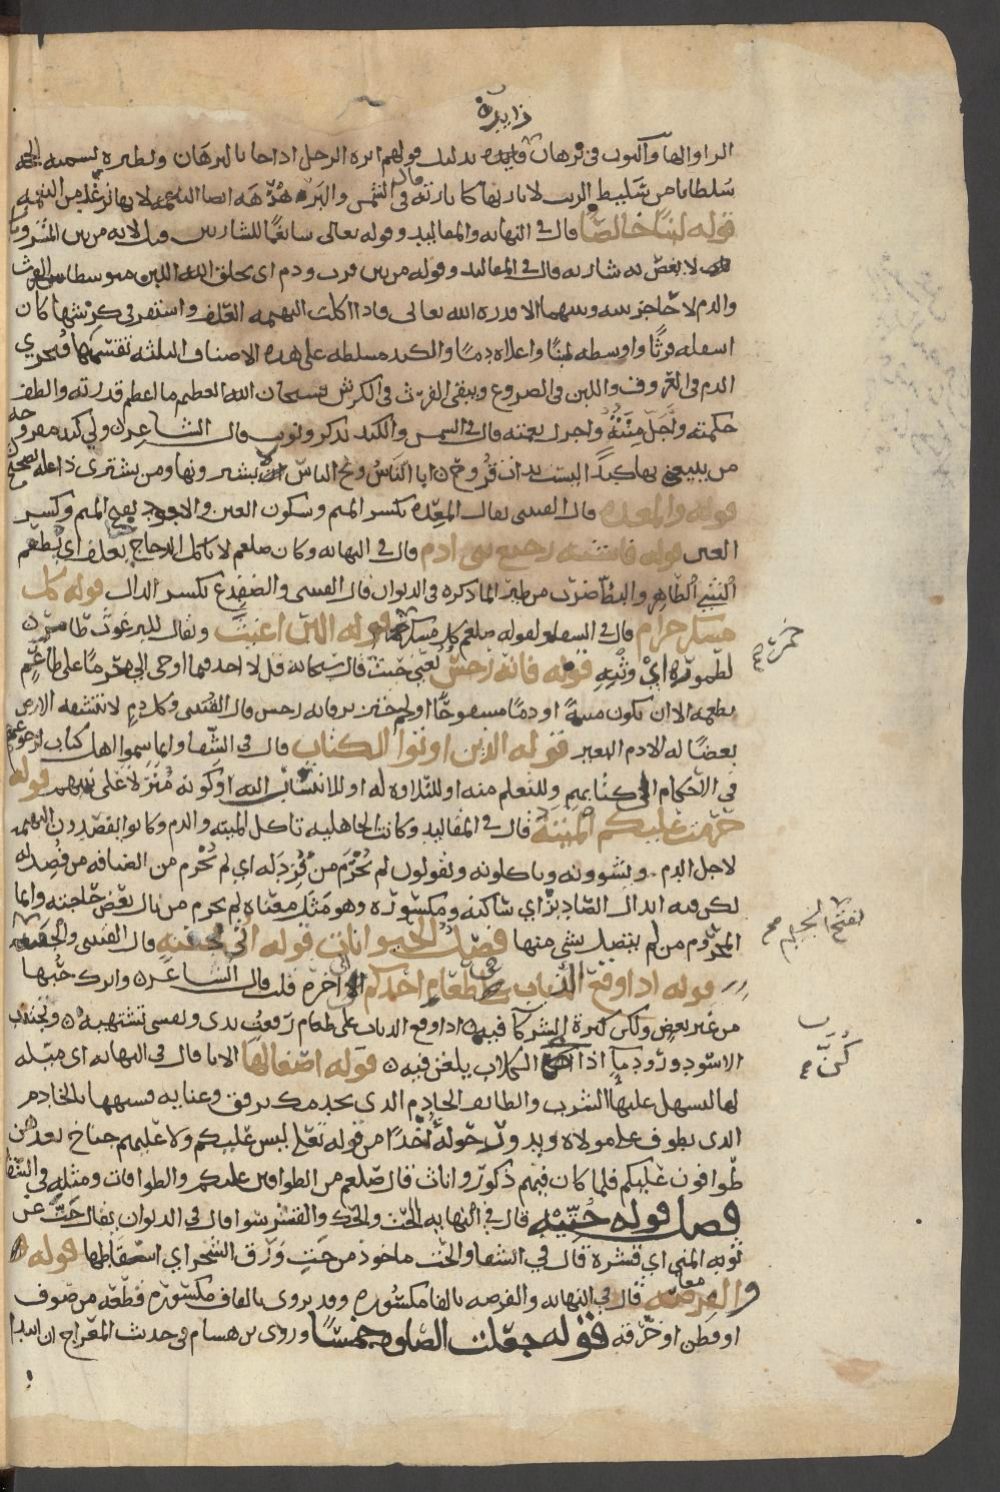 زايدة
الراو الها وآ لنون في برهان فايده بدليل قولهم ابره الرجل اذا جا بالبرهان ونظيره تسميه الحجه
سلطانا من تسليط الرب لانارتها كانارته في الشمس والبره
قوله لبنا خالصا قال في النهايه والمقاليد وقوله تعالى سائغا للشاربين قيل لانه من بين المشروبات
لا يغص به شاربه قال في المقاليد وقوله من بين فرث ودم اي يخلق الله اللبن متوسطا بين الفرث
والدم لا حاجز بينه وبينهما الا قدرة الله تعالى فاذا اكلت البهيمه العلف واستقر في كرشها كان
اسفله فرثا واوسطه لبنا واعلاه دما والكبد مسلطه على هذه الاصناف الثلثه تقسمها فيجري
الدم في العروق واللبن في الضروع ويبقى الفرث في الكرش فسبحان الله العظيم ما اعظم قدرته والطف
حكمته واجل منته واجزل نعمته قال في الشمس والكبد تذكر وتونث قال الشاعر ولي كبد مقروحه
من يبيعني بها كبدا ليست بذات قروح ابا الناس ويح الناس ان يشترونها ومن يشتري ذا عله بصحيح
قوله والمعده قال القيسى يقال المعدة بكسر الميم وسكون العين والاجود بفتح الميم وكسر
العين قوله قال في النهايه وكان صلعم لا ياكل الدجاج يعلف اي يطعم
الشي الطاهر والبط ضرب من طير الما ذكره في الديوان قال القيسى والضفدع بكسر الدال قوله كل
مسكر حرام قال في السفا لقوله صلعم كل مسكر خمر قوله ويقال للبرغوث طامر
لطموره اي وثبه قوله فانه رجس يعني خبث قال سبحانه قل لا اجد فيما اوحي الي محرما على طاعم
يطعمه الا ان يكون ميتة او دما مسفوحا او لحم خنزير فانه رجس قال القيسى وكل دم لا تنشفه الارض
قوله الذين اوتوا الكتاب قال في الشفا وانما سموا اهل كتاب لرجوعهم
في الاحكام الى كتابهم وللتعلم منه او للتلاوة له او للانتساب اليه او كونه منزلا على نبيهم قوله
حرمت عليكم الميتة قال في المقاليد وكانت الجاهليه تاكل الميته والدم وكانوا يفصدون البهيمه
لاجل الدم ويشوونه وياكلونه ويقولون لم يحرم من فزد له اي لم يحرم من الضيافه من فصد له
لكن فيه ابدال الصاد زاي ساكنه ومكسوره وهو مثل معناه لم يحرم من نال بعض حاجته وانما
المحروم من لم يتصل بشي منها فصل الحيوانات قوله قال القيسى
قوله اذا وقع الذباب في طعام احدكم الى آخره قلت قال الشاعر واترك حبها
من غير بغض ولكن كثرة الشركا فيه اذا وقع الذباب على طعام رفعت يدى ونفسي تشتهيه وتجتنب
الاسود ورود ما اذا الكلاب يلغن فيه قوله اصغا لها الانا قال في النهايه اي ميله
لها ليسهل عليها الشرب والطائف الخادم الذي يخدمك برفق وعنايه فشبهها بالخادم
الذى يطوف على مولاه ويدور حوله أخذا من قوله تعلى ليس عليكم ولا عليهم جناح بعدهن
طوافون عليكم فلما كان فيهم ذكور واناث قال صلعم من الطوافين عليكم والطوافات ومثله في الشفا
فصل قوله حتيه قال في النهايه الحت والحك والقشر سوا قال في الديوان يقال حت عن
ثوبه المني اي قشره قال في الشفا والحت ماخوذ من حت ورق الشجر اي اسقاطها قوله
والفرصه معا قال في النهايه والفرصه بالفا مكسوره وقد يروى بالقاف مكسوره قطعه من صوف
او قطن او خرقه قوله جعلت الصلوة خمسا وروى بن هسام في حديث المعراج ان
خمرة
بفتح الجيم